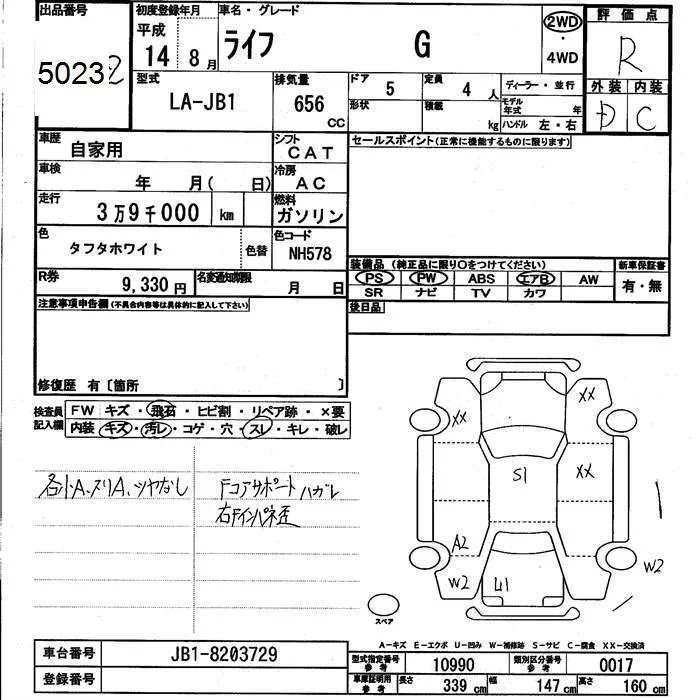 出品番号 初度登録年月 車名・グレード 評価点
平成
50232 14 8月 ライフ G 2WD・4WD R
型式 排気量 ドア 定員 ディーラー・並行 外装 内装
LA-JB1 656 CC 5 4人 D C
形状 積載 kg モデル年式 年
ハンドル 左・右
車歴 自家用 シフト CAT セールスポイント(正常に機能するものに限ります)
車検 年 月( 日) 冷房 AC
走行 3万9千000 km 燃料 ガソリン
色 タフタホワイト 色替 色コード NH578
装備品 (純正品に限り○をつけてください) 新車保証書
R券 9,330円 名変通知期限 月 日
PS PW ABS エアB AW 有・無
SR ナビ TV カワ
注意事項申告欄(不具合内容等は具体的に記入して下さい) 後日品
修復歴 有〔箇所 〕
検査員記入欄 FW キズ・飛石・ヒビ割・リペア跡・×要
内装 キズ・汚レ・コゲ・穴・スレ・キレ・破レ
各小A、スリA、ツヤなし Fコアサポートハガレ
右Fインパネ歪
XX XX
S1 XX
A2
W2 U1 W2
スペア
A-キズ E-エクボ U-凹み W-補修跡 S-サビ C-腐食 XX-交換済
車台番号 JB1-8203729
型式指定番号 参考 10990 類別区分番号 参考 0017
登録番号
車庫証明用 参考 長さ 339cm 幅 147cm 高さ 160cm